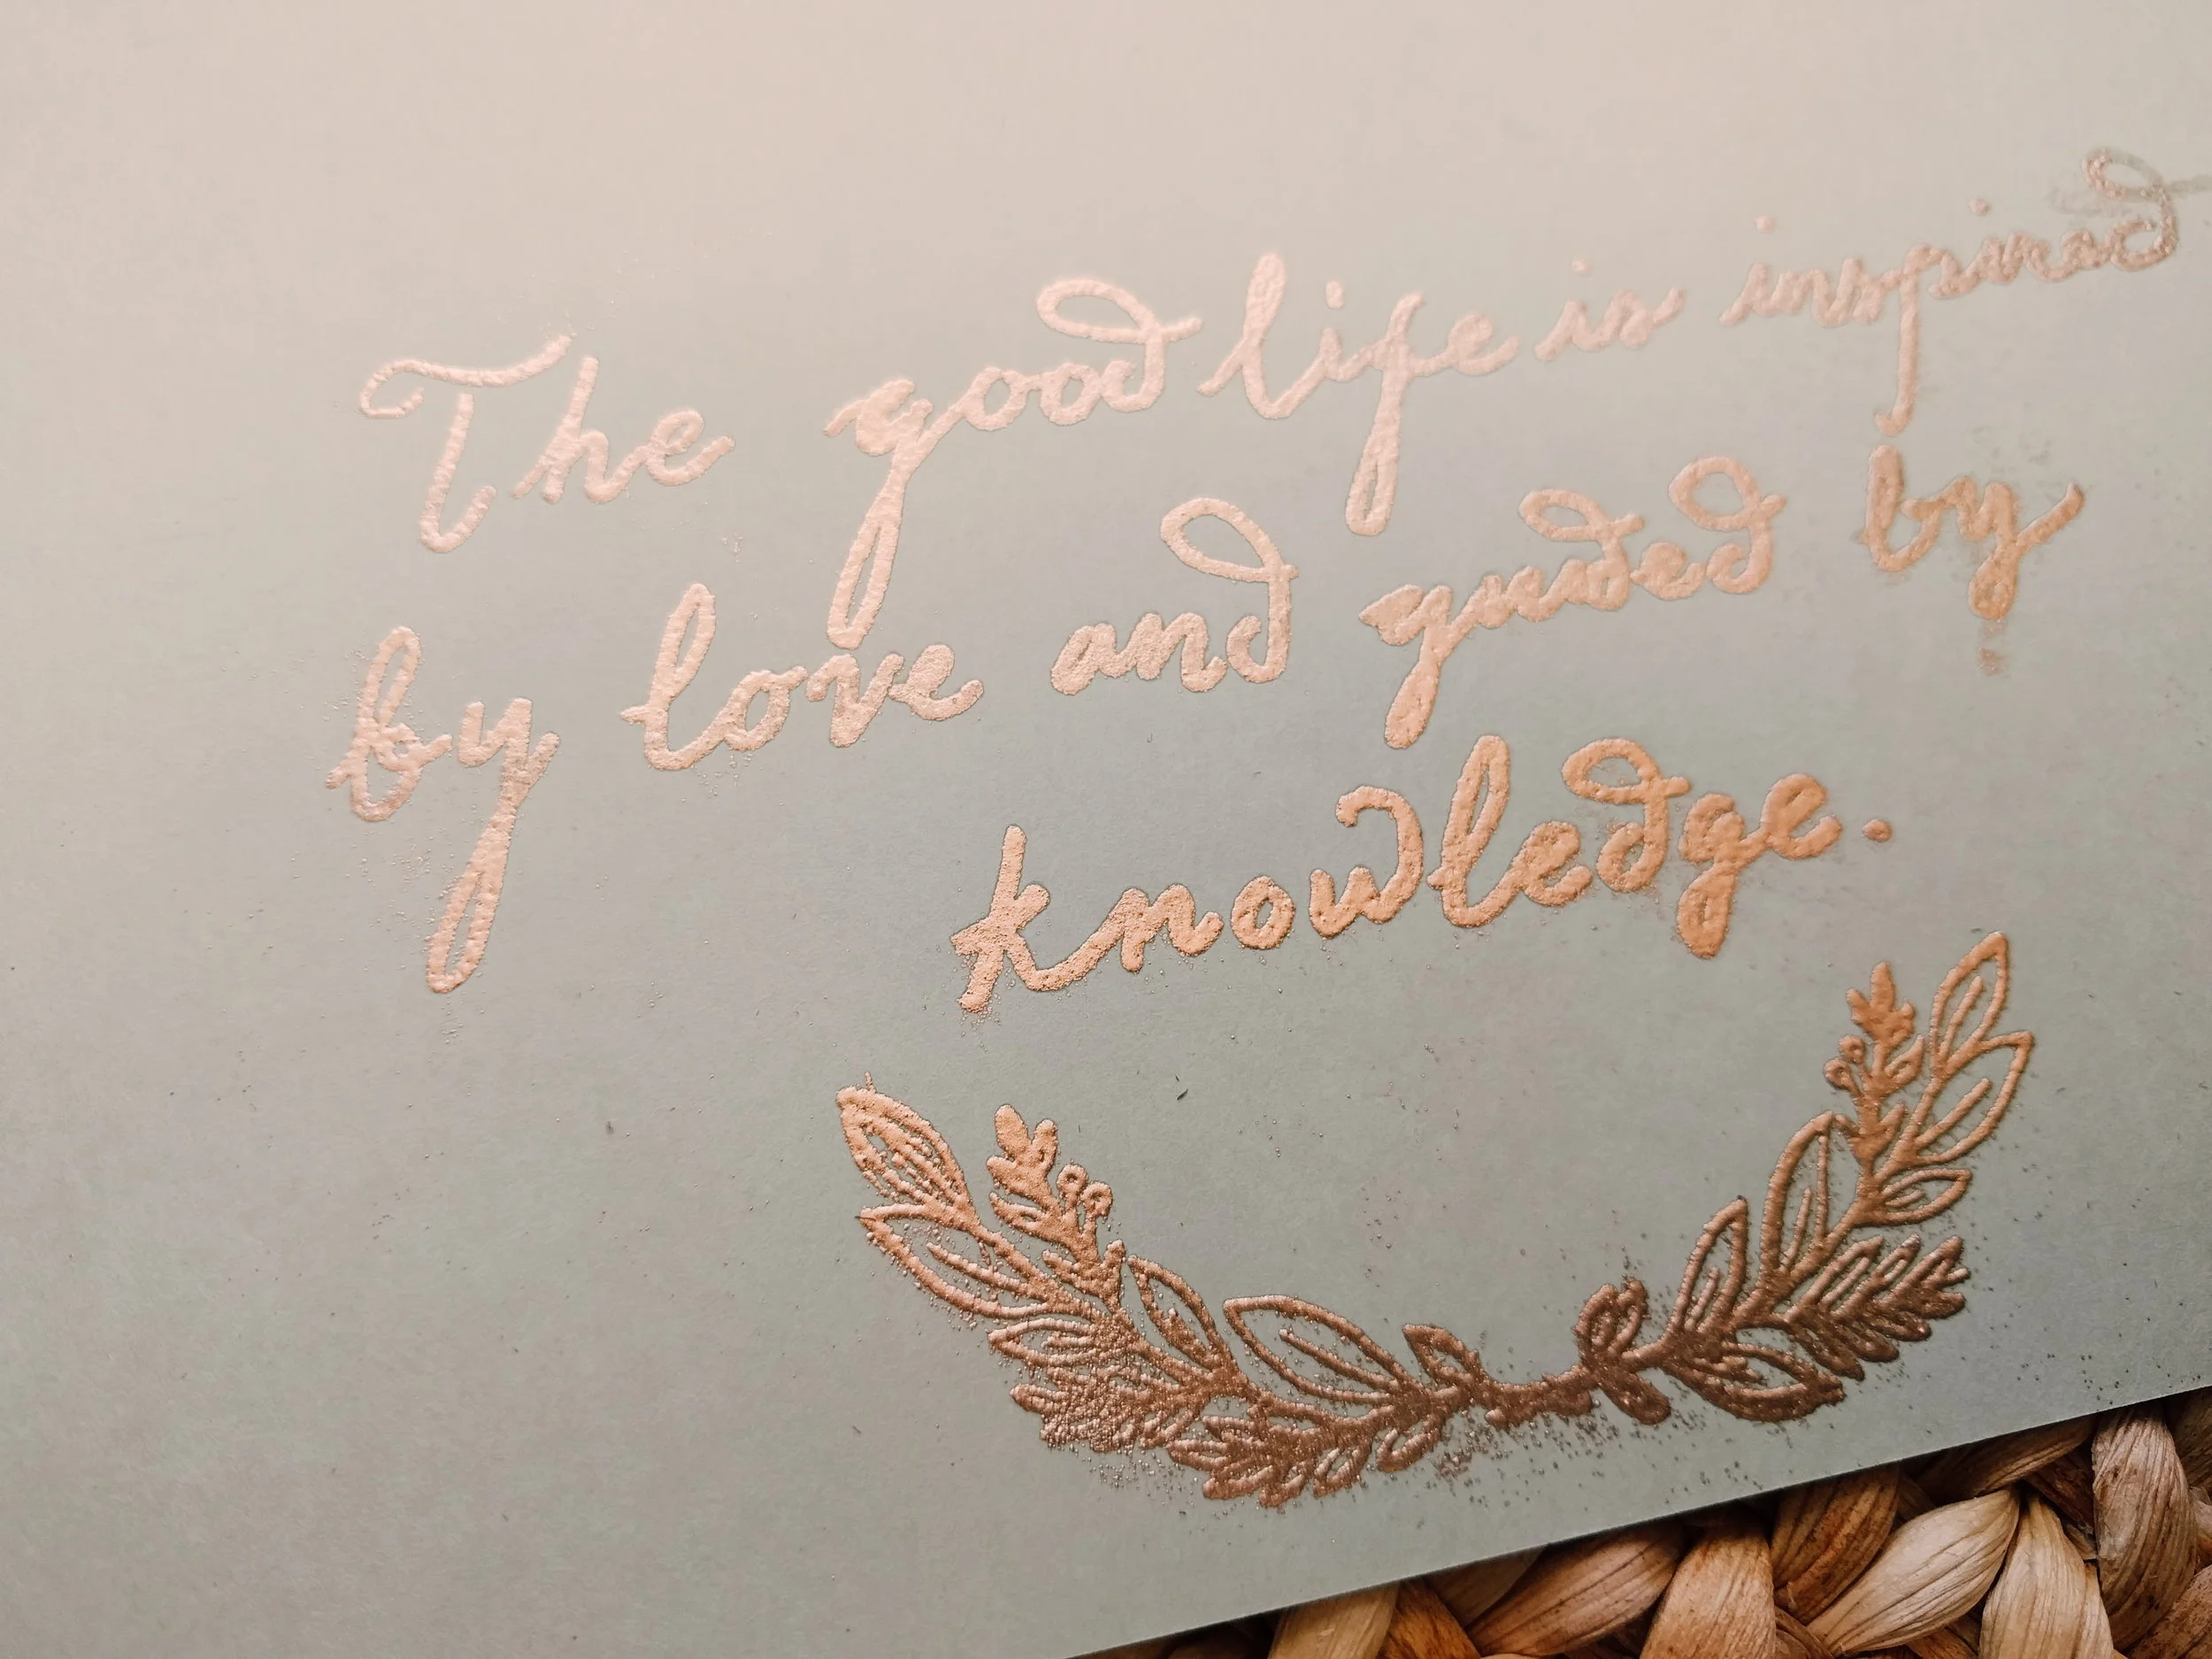 The good life is inspired
by love and guided by
knowledge.